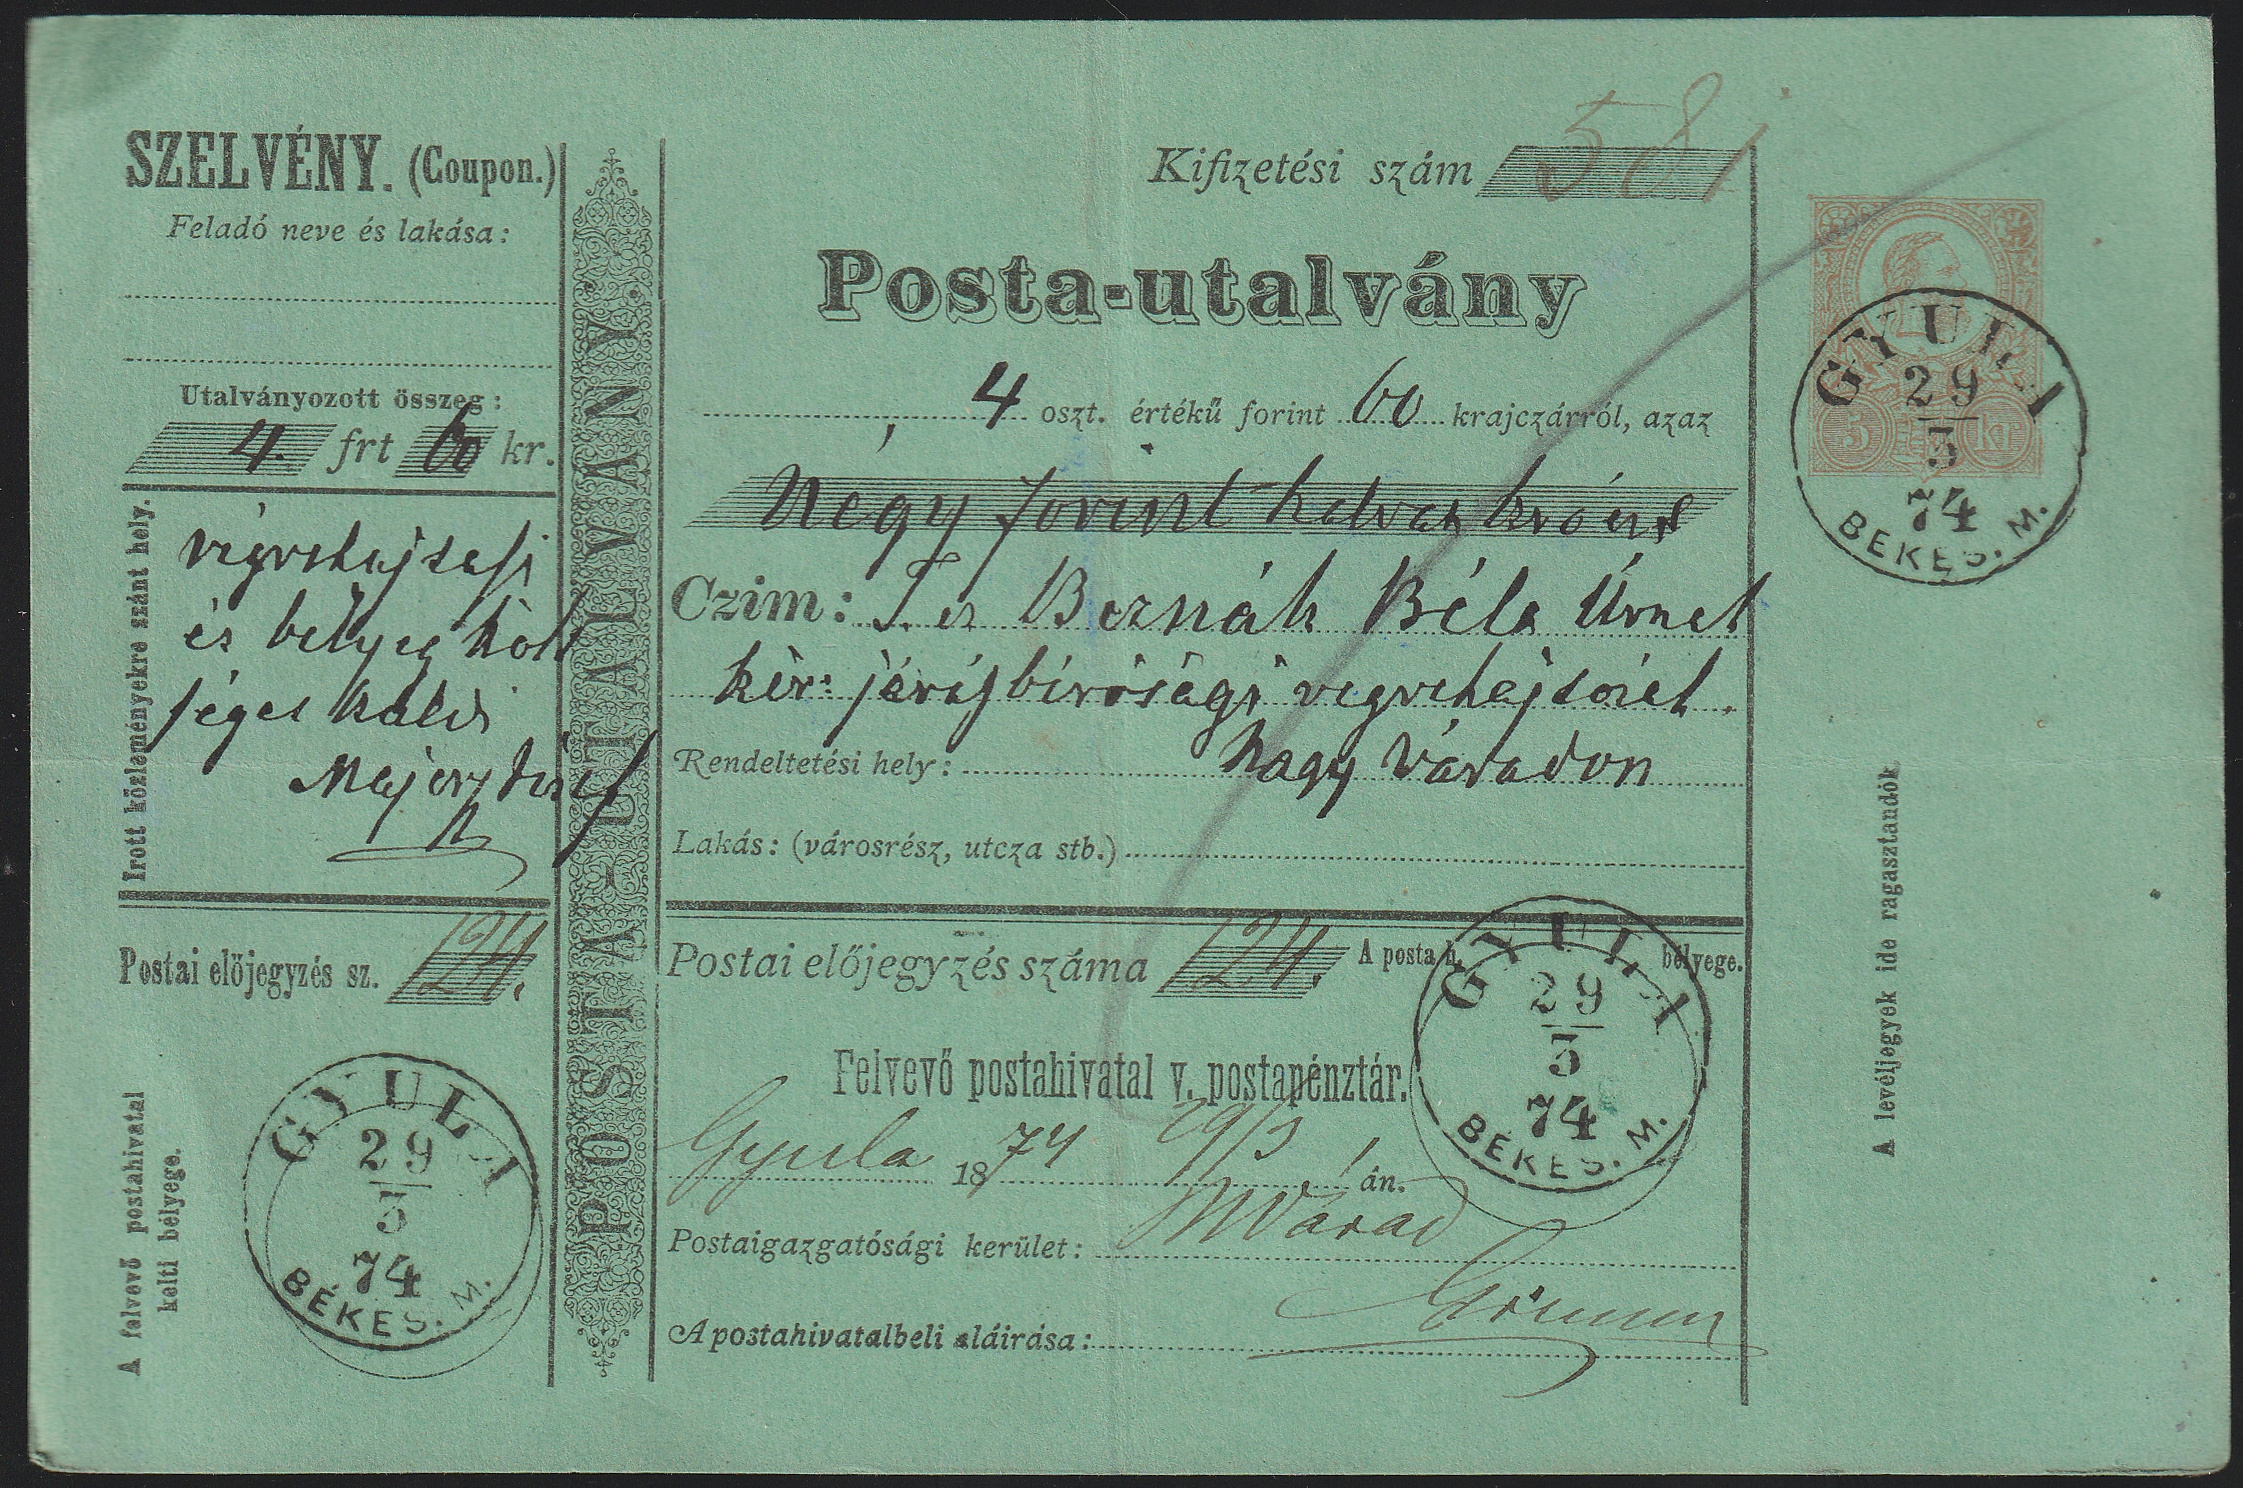 SZELVÉNY. (Coupon.)
Feladó neve és lakása:
Utalványozott összeg:
4. frt 60 kr.
Irott közleményekre szánt hely.
végrehajtasi
és belyeg költ
séget küldi
Postai előjegyzés sz. 124.
A felvevő postahivatal
kelti bélyege.
GYULA
29
3
74
BÉKÉS. M.
POSTA-UTALVÁNY
Kifizetési szám 581
Posta-utalvány
4 oszt. értékű forint 60 krajczárról, azaz
Négy forint hatvan
Czim: Béla Úrnak
kir: járásbirósági végrehajtónak.
Rendeltetési hely: Nagy Váradon
Lakás: (városrész, utcza stb.)
Postai előjegyzés száma 124. A posta h. bélyege.
Felvevő postahivatal v. postapénztár.
Gyula 1874 29/3 án.
Postaigazgatósági kerület: NVárad
A postahivatalbeli aláirása:
GYULA
29
3
74
BÉKÉS. M.
5 kr
GYULA
29
3
74
BÉKÉS. M.
A levéljegyek ide ragasztandók.